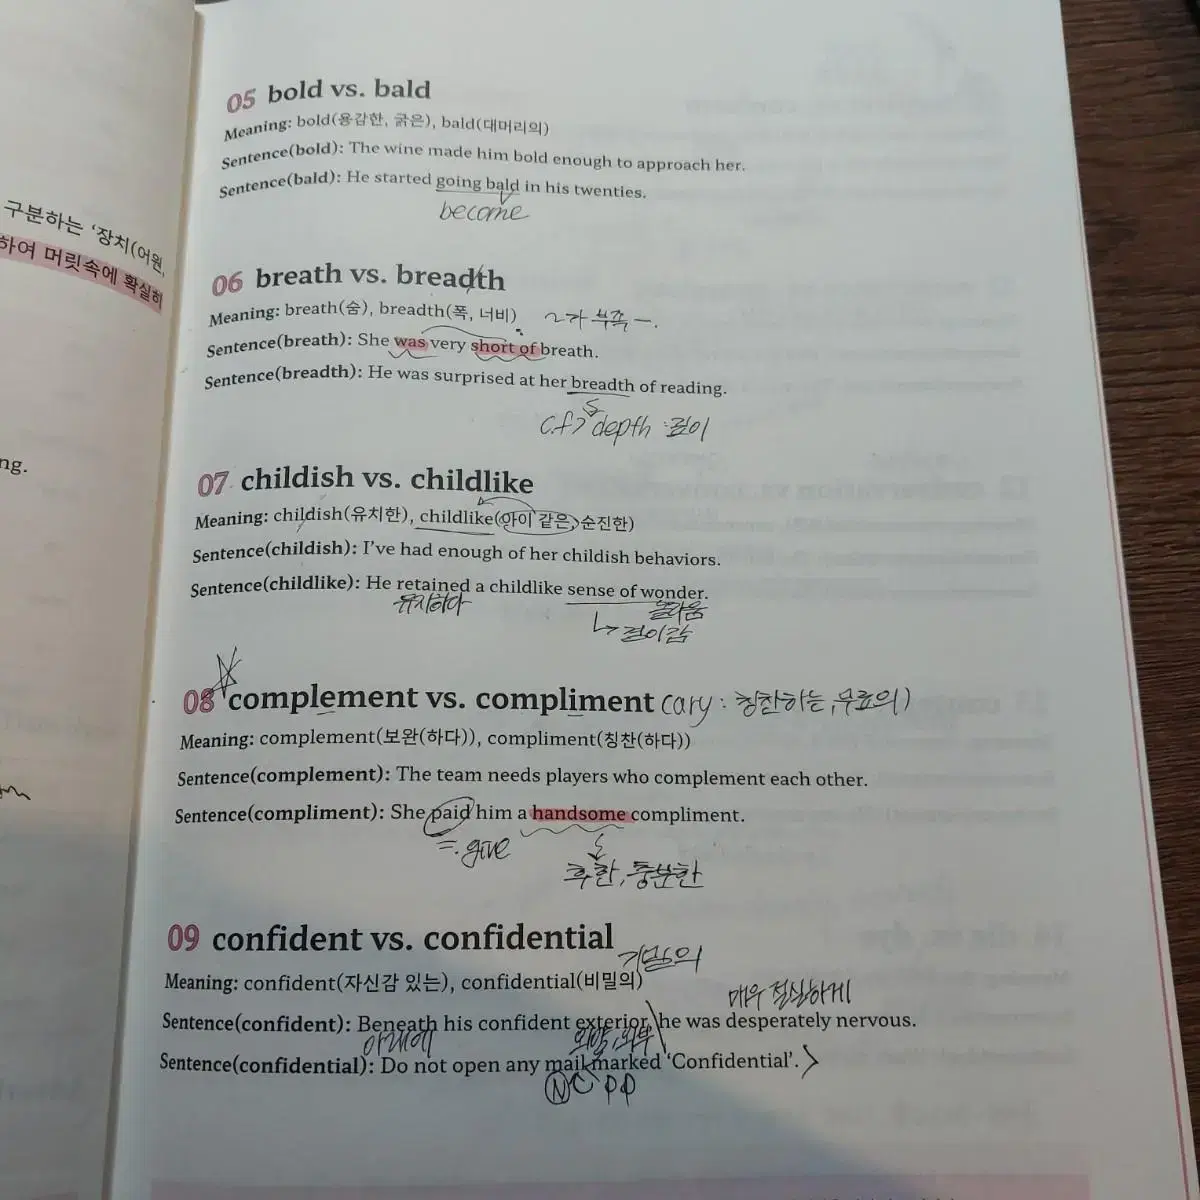 구분하는 '장치(어원,
하여 머릿속에 확실히
ng.
05 bold vs. bald
Meaning: bold(용감한, 굵은), bald(대머리의)
Sentence(bold): The wine made him bold enough to approach her.
Sentence(bald): He started going bald in his twenties.
become
06 breath vs. breadth
Meaning: breath(숨), breadth(폭, 너비) ~가 부족ㅡ.
Sentence(breath): She was very short of breath.
Sentence(breadth): He was surprised at her breadth of reading.
c.f> depth :깊이
07 childish vs. childlike
Meaning: childish(유치한), childlike(아이 같은, 순진한)
Sentence(childish): I've had enough of her childish behaviors.
Sentence(childlike): He retained a childlike sense of wonder.
유지하다 놀라움
→ 경이감
08 complement vs. compliment (ary : 칭찬하는, 무료의)
Meaning: complement(보완(하다)), compliment(칭찬(하다))
Sentence(complement): The team needs players who complement each other.
Sentence(compliment): She paid him a handsome compliment.
=. give
후한, 충분한
09 confident vs. confidential
기밀의
Meaning: confident(자신감 있는), confidential(비밀의)
매우 절실하게
Sentence(confident): Beneath his confident exterior, he was desperately nervous.
아래에 외양, 외부
Sentence(confidential): Do not open any mail marked 'Confidential'.
N pp